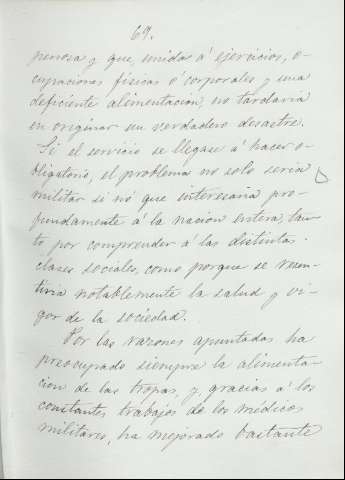 69.
penosa y que, unidas á ejercicios, o-
cupaciones físicas ó corporales y una
deficiente alimentacion, no tardaria
en originar un verdadero desastre.
Si el servicio se llegase á hacer o-
bligatorio, el problema no solo seria
militar si nó que interesaria pro-
fundamente á la nacion entera, tan-
to por comprender á las distintas
clases sociales, como porque se resen-
tiria notablemente la salud y vi-
gor de la sociedad.
Por las razones apuntadas ha
preocupado siempre la alimenta-
cion de las tropas, y, gracias á los
constantes trabajos de los médicos
militares, ha mejorado bastante